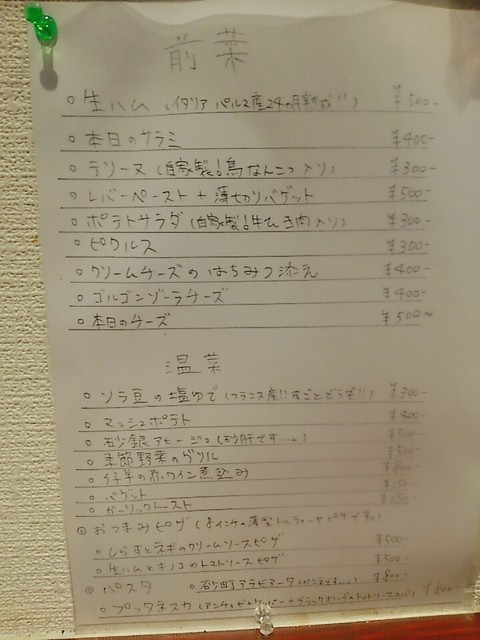 前菜
○ 生ハム (イタリア パルマ産24ヶ月熟成!!) ¥500-
○ 本日のサラミ ¥400-
○ テリーヌ (自家製!鳥なんこつ入り) ¥300-
○ レバーペースト + 薄切りバゲット ¥500-
○ ポテトサラダ (自家製!牛すじ肉入り) ¥300-
○ ピクルス ¥300-
○ クリームチーズのはちみつ添え ¥400-
○ ゴルゴンゾーラチーズ ¥400-
○ 本日のチーズ ¥500~
温菜
○ ソラ豆の塩ゆで (フランス産!! 皮ごとどうぞ!!) ¥300-
○ マッシュポテト ¥400-
○ 砂銀アヒージョ (砂肝です...。) ¥500-
○ 季節野菜のグリル ¥500-
○ 仔羊の赤ワイン煮込み ¥800-
○ バゲット ¥150-
○ ガーリックトースト ¥250-
◎ おつまみピザ (8インチの薄型トルティーヤピザです。)
○ しらすとネギのクリームソースピザ ¥500-
○ 生ハムとキノコのトマトソースピザ ¥500-
◎ パスタ ○ 砂町アラビアータ ¥800-
○ プッタネスカ (アンチョビ+ケーパー+ブラックオリーブの) ¥800-